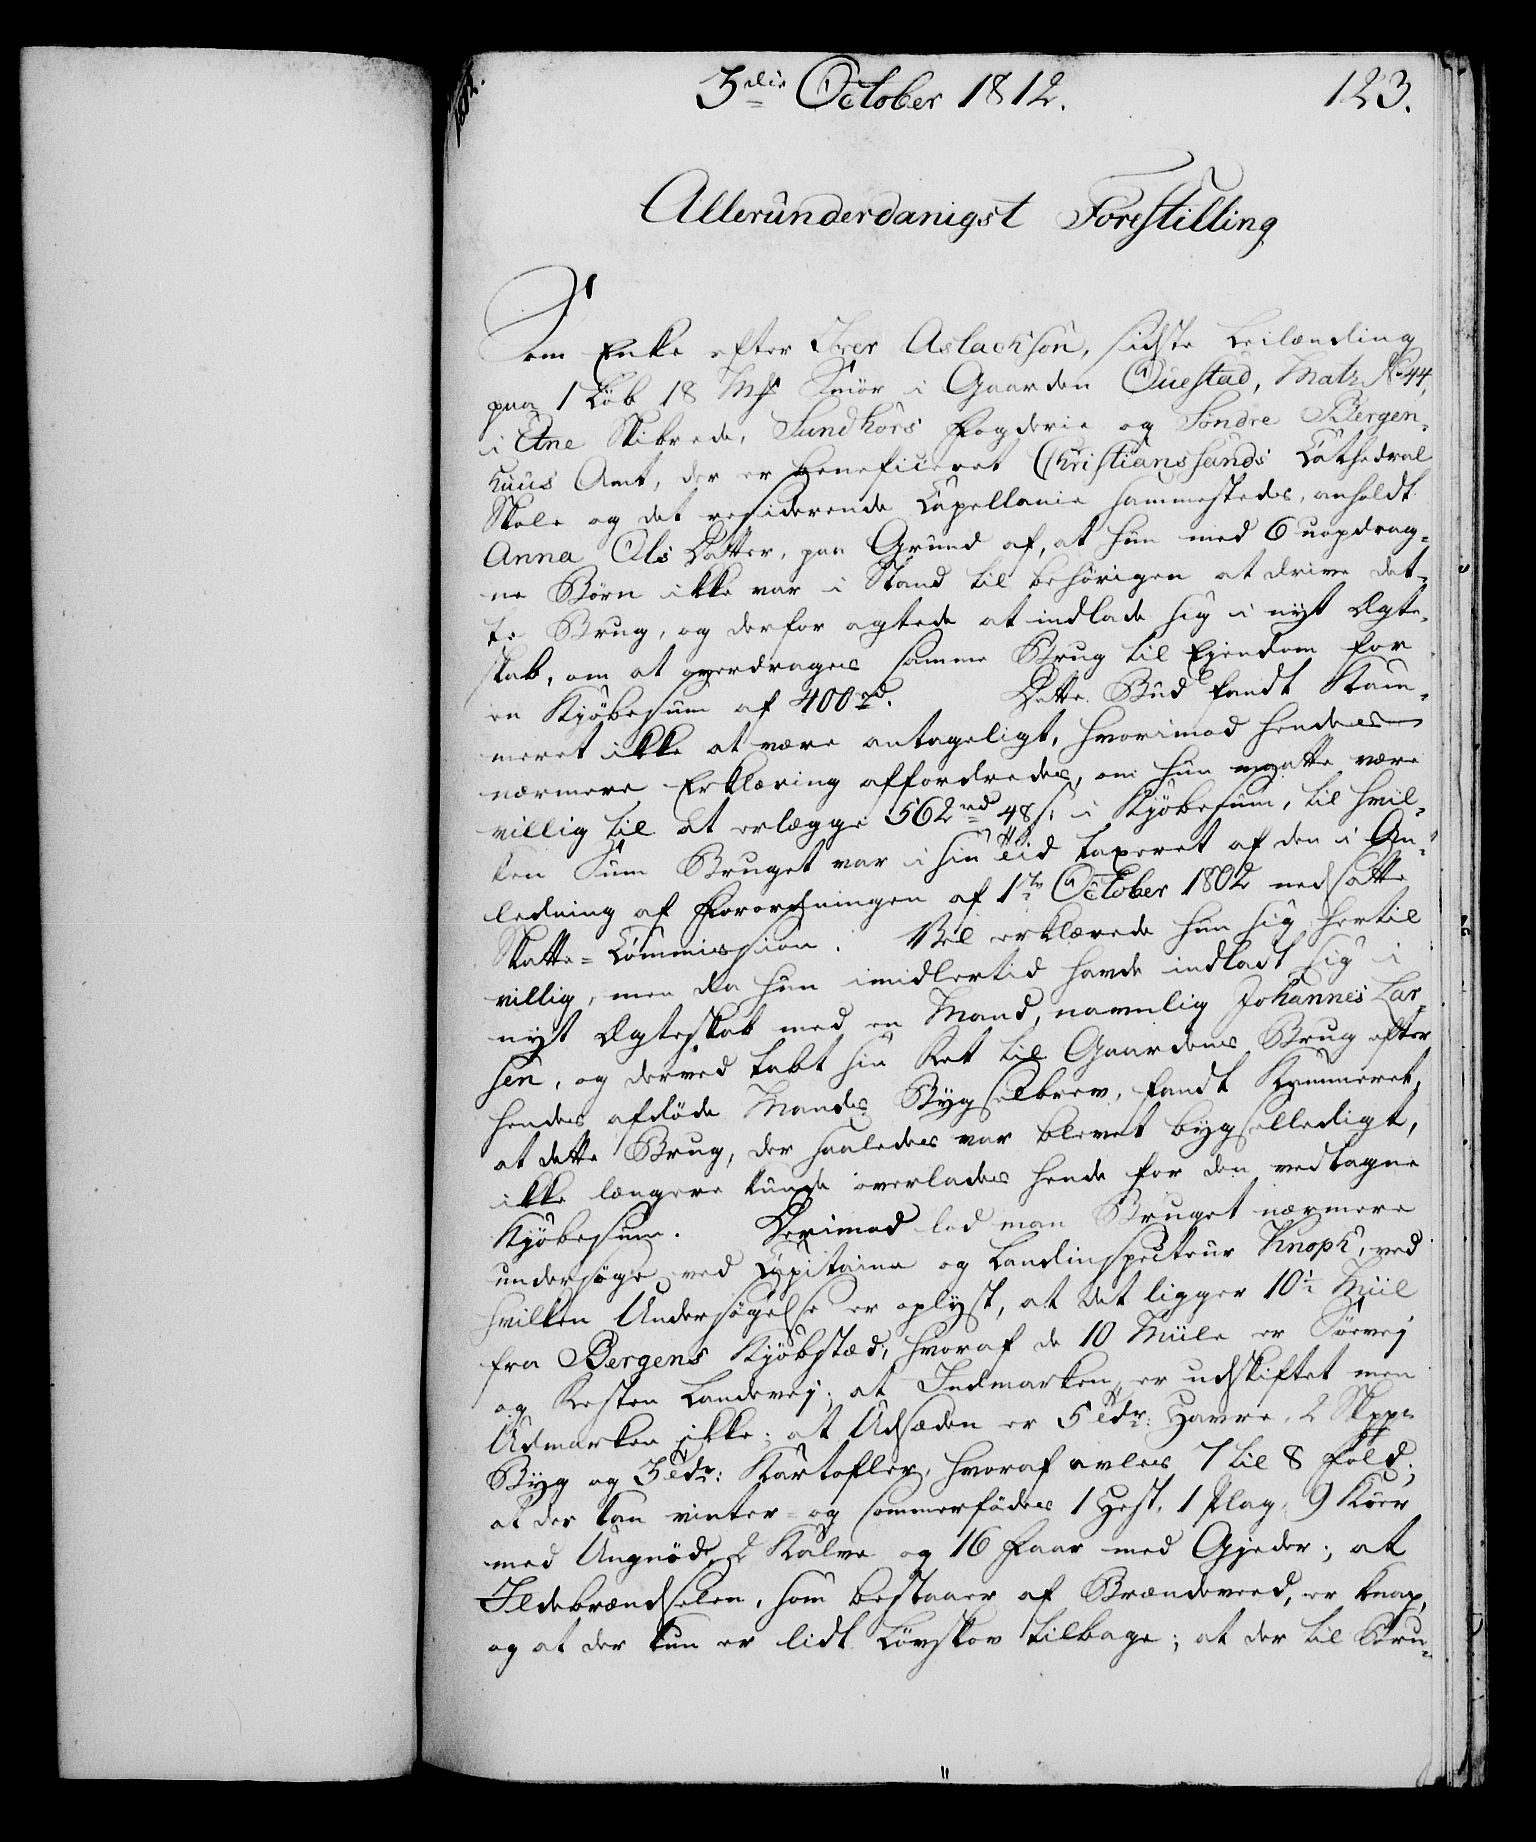 3die October 1812.
123.
Allerunderdanigst Forestilling
Som Enke efter Iver Aslachsøn, sidste Leilænding
paa 1 Løb 18 Mk Smør i Gaarden Qvestad, Matr. No 44,
i Etne Skibrede, Sundhors Fogderie og Søndre Bergen-
huus Amt, der er beneficeret Christianssands Cathedral
Skole og det residerende Capellanie sammestedes, anholdt
Anna Ols Datter, paa Grund af, at hun med 6 uopdrag-
ne Børn ikke var i Stand til behørigen at drive det-
te Brug, og derfor agtede at indlade sig i nyt Ægte-
skab, om at overdrages samme Brug til Ejendom for
en Kjøbesum af 400 rd. Dette Bud fandt Kam-
meret ikke at være antageligt, hvorimod hendes
nærmere Erklæring affordredes, om hun maatte være
villig til at erlægge 562 rd 48 s. i Kjøbesum, til hvil-
ken Sum Bruget var i sin Tid taxeret af den i An-
ledning af Forordningen af 1te October 1802 nedsatte
Skatte-Commission. Vel erklærede hun sig hertil
villig, men da hun imidlertid havde indladt sig i
nyt Ægteskab med en Mand, navnlig Johannes Lar-
sen, og derved tabt sin Ret til Gaardens Brug efter
hendes afdøde Mands Bygselbrev, fandt Kammeret,
at dette Brug, der saaledes var blevet bygselledigt,
ikke længere kunde overlades hende for den vedtagne
Kjøbesum. Derimod lod man Bruget nærmere
undersøge ved Capitaine og Landinspecteur Knoph, ved
hvilken Undersøgelse er oplyst, at det ligger 10½ Miil
fra Bergens Kjøbstæd, hvoraf de 10 Miile er Søevej
og Resten Landevej; at Indmarken er udskiftet men
Udmarken ikke; at Udsæden er 5 Tdr: Havre, 2 Skpr
Byg og 3 Tdr: Kartofler, hvoraf avles 7 til 8 Fold;
at der kan vinter- og sommerfødes 1 Hest, 1 Plag, 9 Køer
med Ungnød, 2 Kalve og 16 Faar med Gjeder; at
Ildebrændselen, som bestaaer af Brændeveed, er knap,
og at der kun er lidt Løvskov tilbage; at der til Bru-